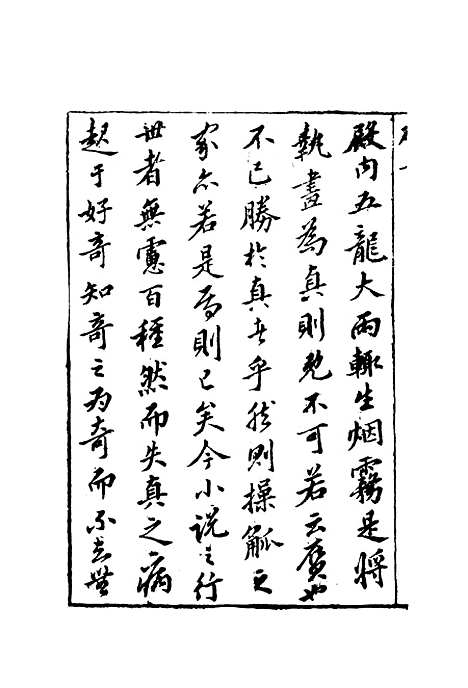 殿內五龍大雨輒生烟霧是將
執畫為真則既不可若云贗也
不已勝於真者乎然則操觚之
家亦若是焉則已矣今小說之行
世者無慮百種然而失真之病
起于好奇知奇之為奇而不知無